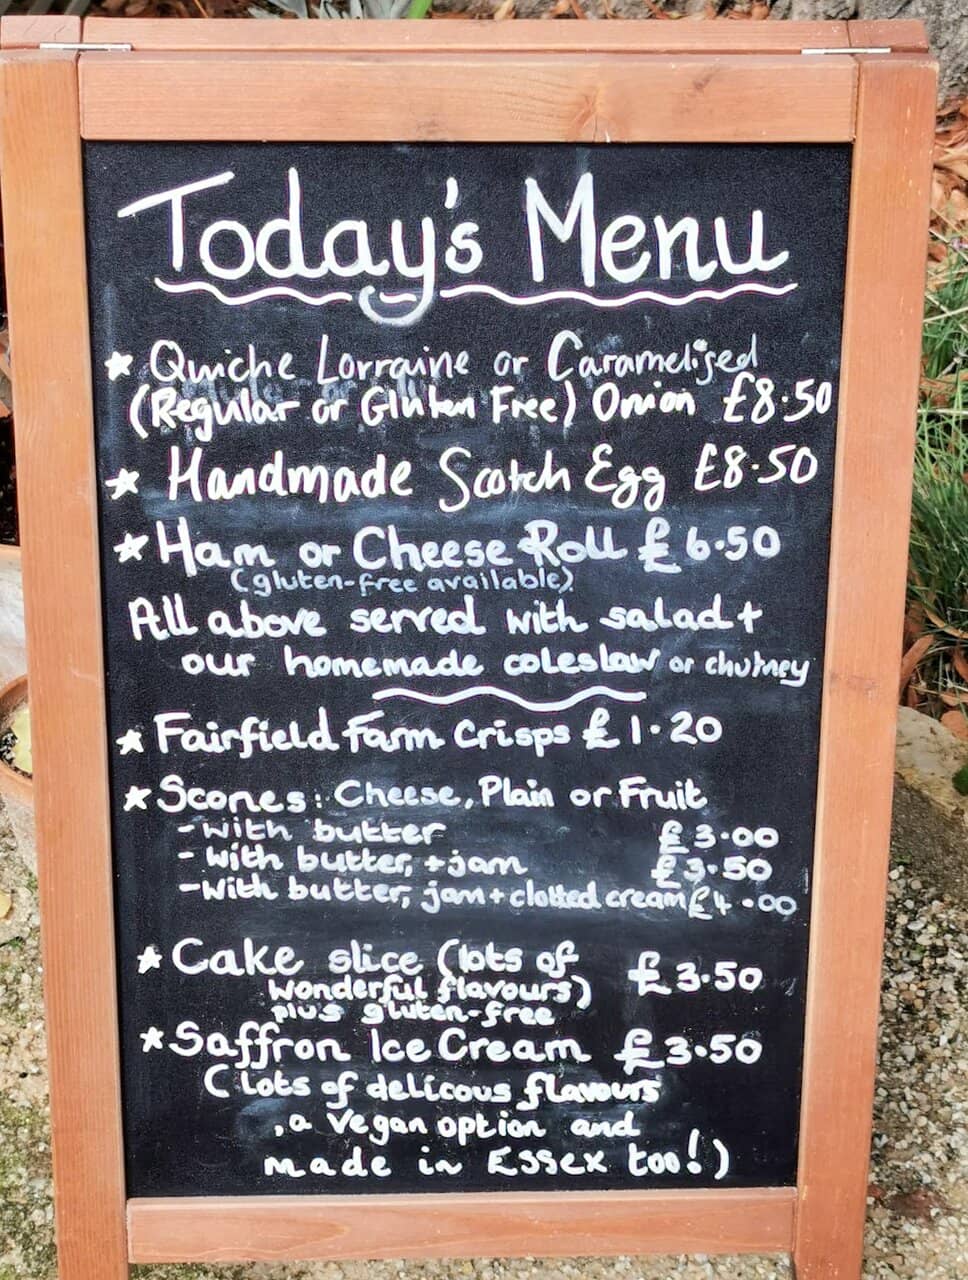 Today's Menu
★ Quiche Lorraine or Caramelised
(Regular or Gluten Free) Onion £8.50
★ Handmade Scotch Egg £8.50
★ Ham or Cheese Roll £6.50
(gluten-free available)
All above served with salad +
our homemade coleslaw or chutney
★ Fairfield Farm Crisps £1.20
★ Scones: Cheese, Plain or Fruit
- with butter £3.00
- with butter, + jam £3.50
- with butter, jam + clotted cream £4.00
★ Cake slice (lots of
wonderful flavours) £3.50
plus gluten-free
★ Saffron Ice Cream £3.50
(lots of delicous flavours
, a vegan option and
made in Essex too!)